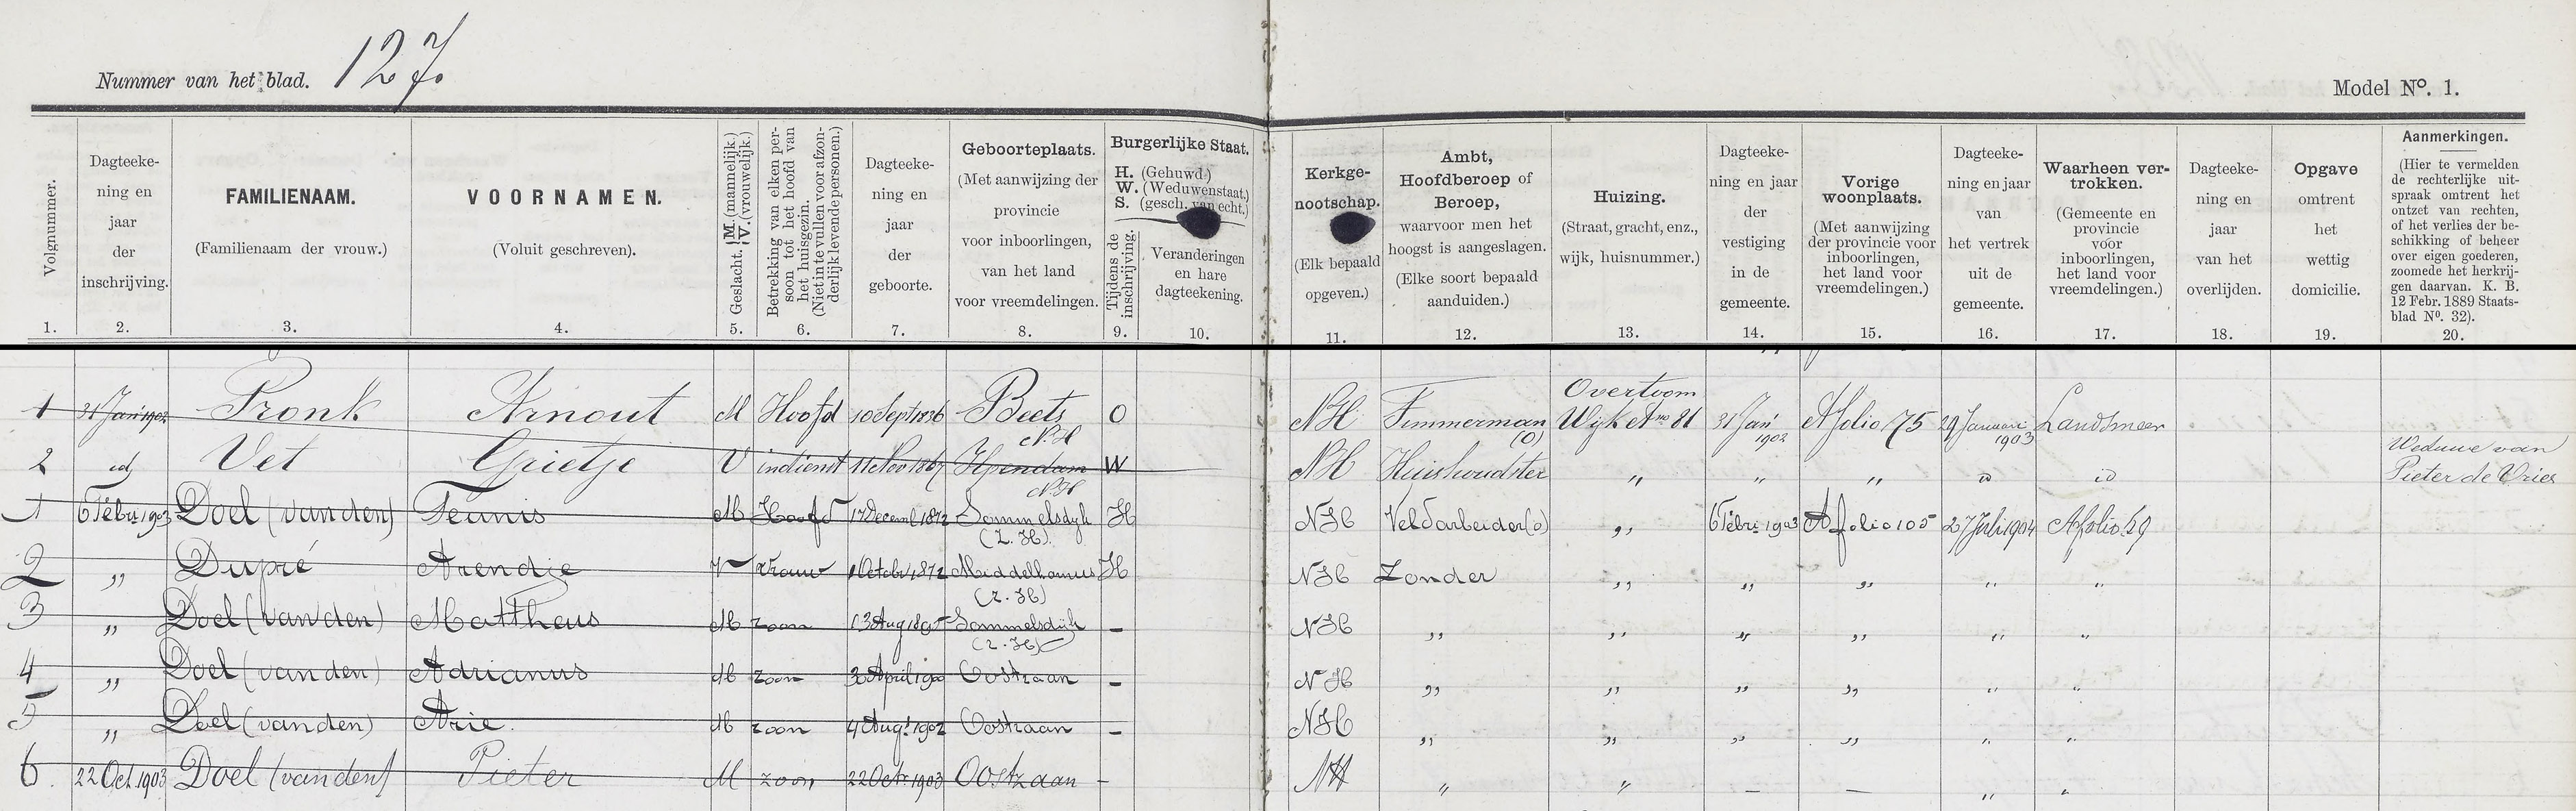 Nummer van het blad. 127.
Model No. 1.
1. Volgnummer.
2. Dagteekening en jaar der inschrijving.
3. FAMILIENAAM. (Familienaam der vrouw.)
4. VOORNAMEN. (Voluit geschreven).
5. Geslacht. M. (mannelijk.) V. (vrouwelijk.)
6. Betrekking van elken persoon tot het hoofd van het huisgezin. (Niet in te vullen voor afzonderlijk levende personen.)
7. Dagteekening en jaar der geboorte.
8. Geboorteplaats. (Met aanwijzing der provincie voor inboorlingen, van het land voor vreemdelingen.)
Burgerlijke Staat. H. (Gehuwd.) W. (Weduwenstaat.) S. (gesch. van echt.)
9. Tijdens de inschrijving.
10. Veranderingen en hare dagteekening.
11. Kerkgenootschap. (Elk bepaald opgeven.)
12. Ambt, Hoofdberoep of Beroep, waarvoor men het hoogst is aangeslagen. (Elke soort bepaald aanduiden.)
13. Huizing. (Straat, gracht, enz., wijk, huisnummer.)
14. Dagteekening en jaar der vestiging in de gemeente.
15. Vorige woonplaats. (Met aanwijzing der provincie voor inboorlingen, het land voor vreemdelingen.)
16. Dagteekening en jaar van het vertrek uit de gemeente.
17. Waarheen vertrokken. (Gemeente en provincie voor inboorlingen, het land voor vreemdelingen.)
18. Dagteekening en jaar van het overlijden.
19. Opgave omtrent het wettig domicilie.
20. Aanmerkingen. (Hier te vermelden de rechterlijke uitspraak omtrent het ontzet van rechten, of het verlies der beschikking of beheer over eigen goederen, zoomede het herkrijgen daarvan. K. B. 12 Febr. 1889 Staatsblad No. 32).
1 31 Jan 1902 Pronk Arnout M Hoofd 10 Sept 1836 Beets N.H O NH Timmerman (O) Overtoom Wijk A no 81 31 Jan 1902 A folio 75 29 Januari 1903 Landsmeer
2 id Vet Grietje V indienst 11 Nov 1867 Ilpendam N.H W NH Huishoudster " " " id id Weduwe van Pieter de Vries
1 6 Febr. 1903 Doel (van den) Teunis M Hoofd 17 Decemb 1872 Sommelsdijk (Z.H) H NH Veldarbeider (o) " 6 Febr. 1903 A folio 105 27 Juli 1904 A folio 29
2 " Dupré Arendje V Vrouw 1 Octob. 1872 Middelharnis (Z.H) H NH Zonder " " " " "
3 " Doel (van den) Mattheus M zoon 13 Aug 1895 Sommelsdijk (Z.H) - NH " " " " " "
4 " Doel (van den) Adrianus M zoon 3 April 1900 Oostzaan - NH " " " " " "
5 " Doel (van den) Arie. M zoon 4 Aug. 1902 Oostzaan - NH " " " " " "
6. 22 Oct. 1903 Doel (van den) Pieter M zoon 22 Oct. 1903 Oostzaan - NH " " — — " "